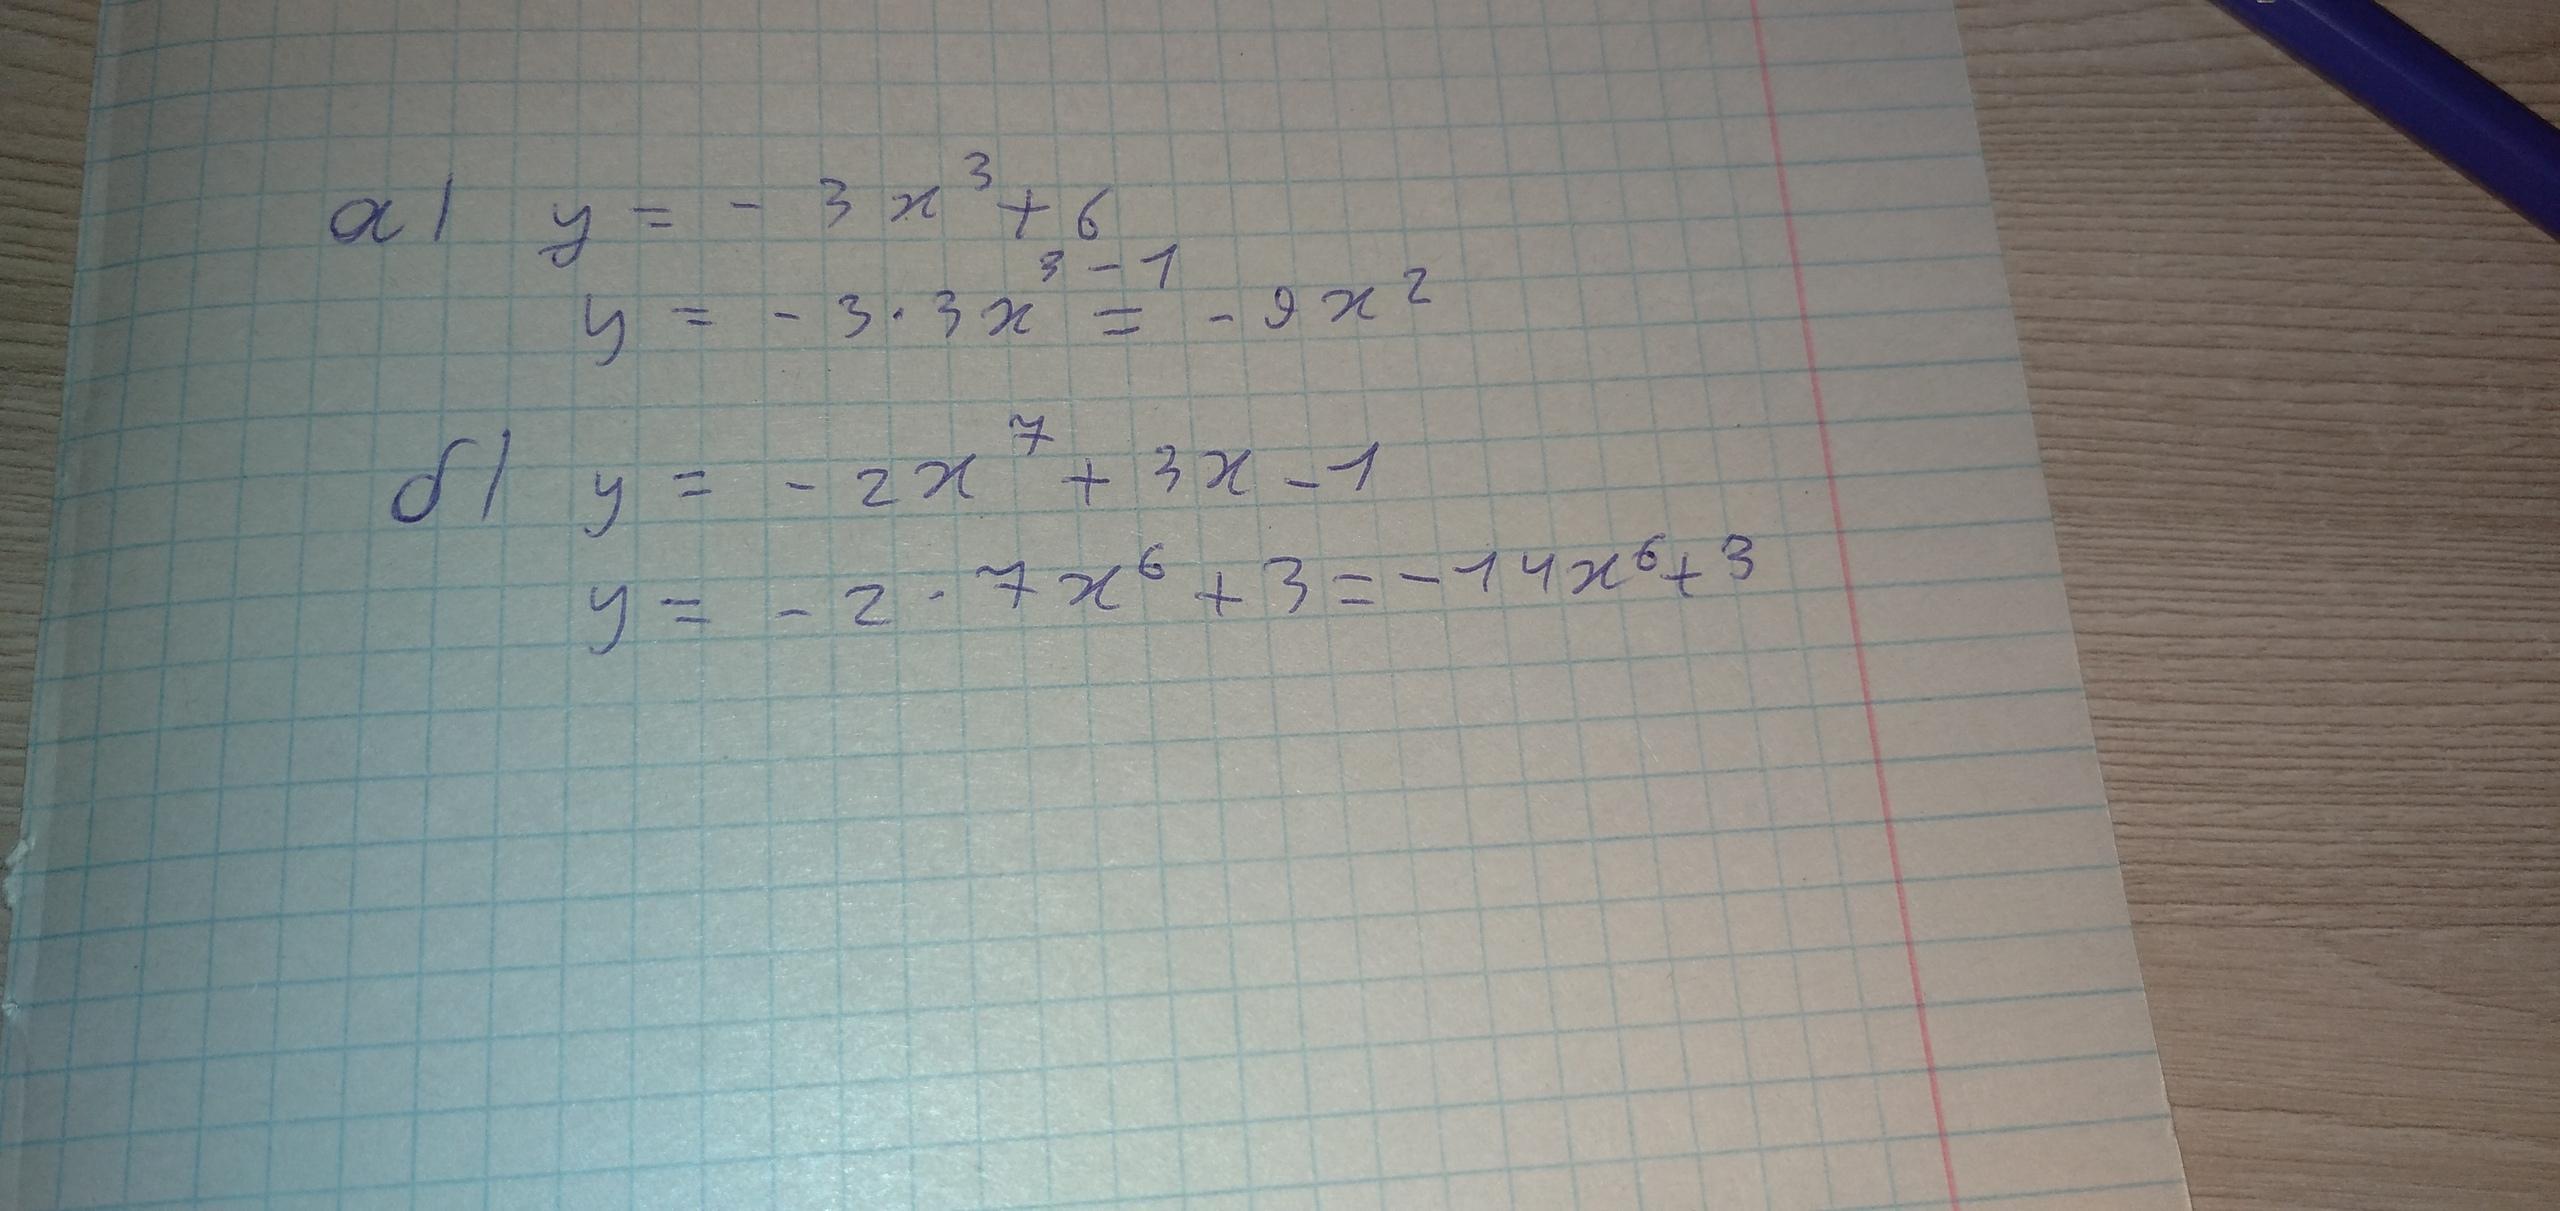 а) y = - 3x³ + 6
y = - 3 · 3x³⁻¹ = - 9x²
б) y = - 2x⁷ + 3x - 1
y = - 2 · 7x⁶ + 3 = - 14x⁶ + 3